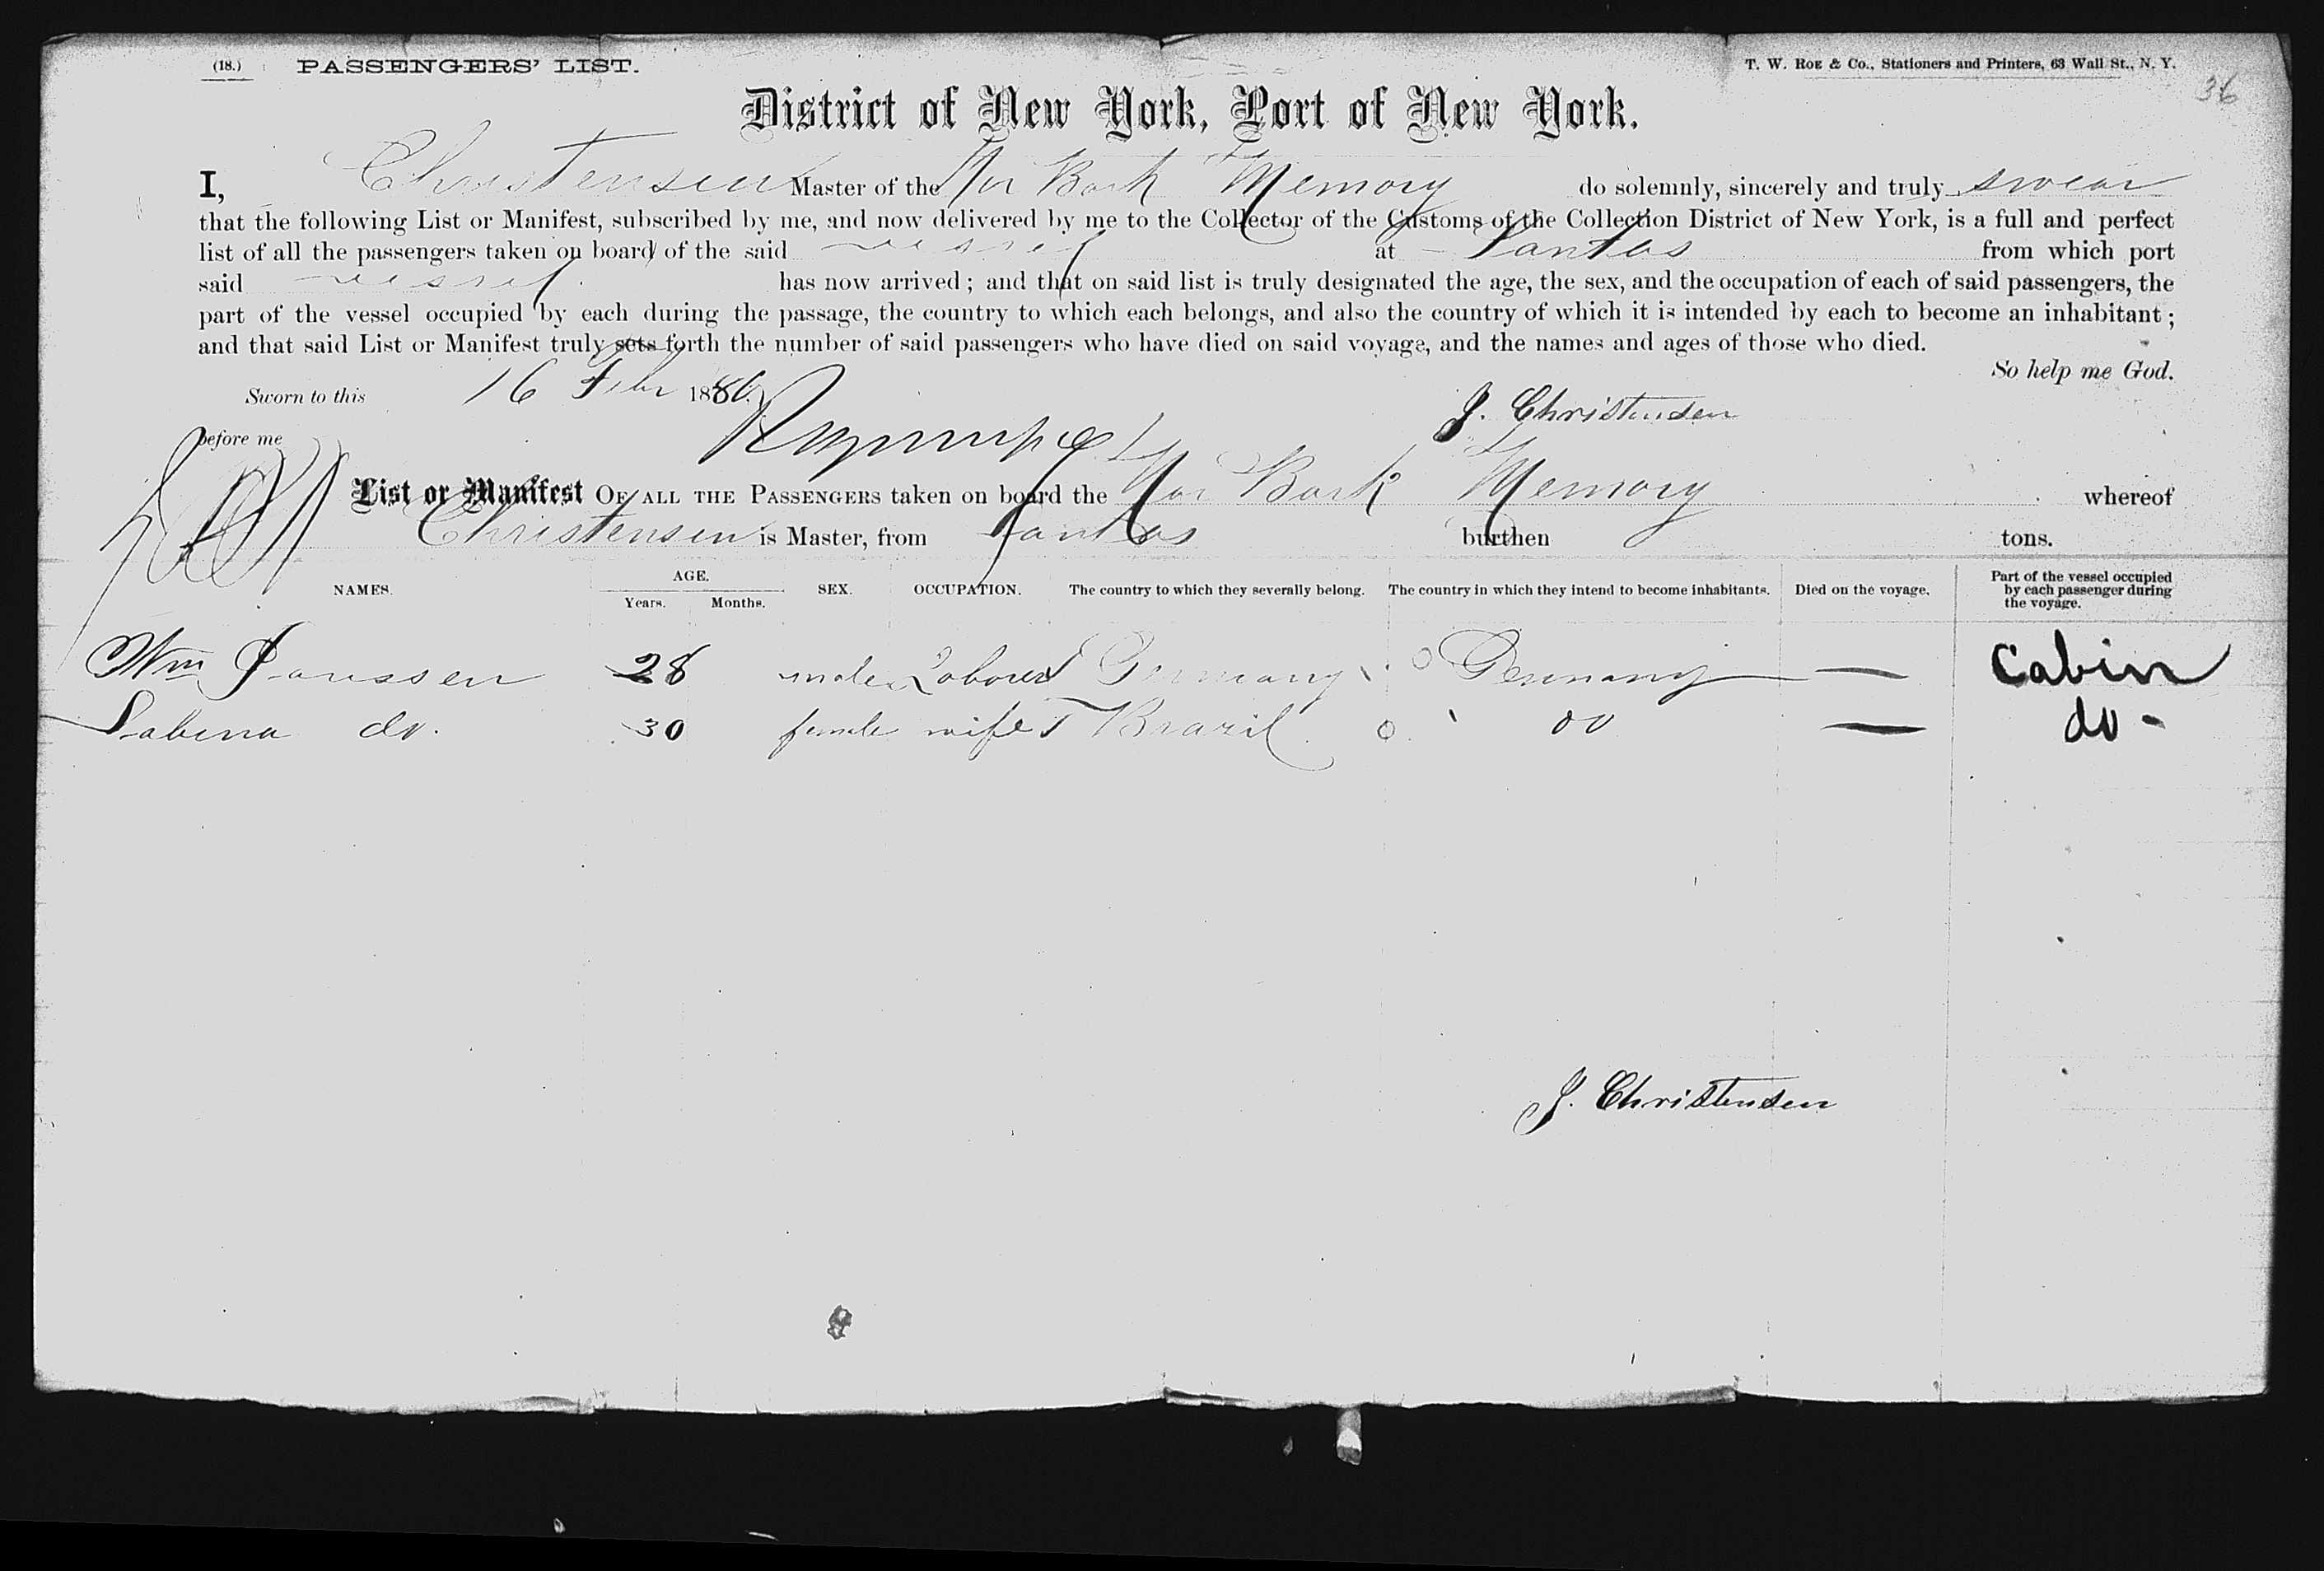 (18.) PASSENGERS' LIST. T. W. ROE & Co., Stationers and Printers, 63 Wall St., N. Y.
36
District of New York, Port of New York.
I, Christensen Master of the Nor Bark Memory do solemnly, sincerely and truly swear
that the following List or Manifest, subscribed by me, and now delivered by me to the Collector of the Customs of the Collection District of New York, is a full and perfect
list of all the passengers taken on board of the said vessel at Santos from which port
said vessel has now arrived; and that on said list is truly designated the age, the sex, and the occupation of each of said passengers, the
part of the vessel occupied by each during the passage, the country to which each belongs, and also the country of which it is intended by each to become an inhabitant;
and that said List or Manifest truly sets forth the number of said passengers who have died on said voyage, and the names and ages of those who died.
So help me God.
Sworn to this 16 Febr 1886.
J. Christensen
before me
List or Manifest OF ALL THE PASSENGERS taken on board the Nor Bark Memory whereof
Christensen is Master, from Santos burthen tons.
NAMES. AGE. Years. Months. SEX. OCCUPATION. The country to which they severally belong. The country in which they intend to become inhabitants. Died on the voyage. Part of the vessel occupied by each passenger during the voyage.
Wm Janssen 28 male Laborer Germany Germany — Cabin
Sabina do. 30 female wife Brazil do — do -
J. Christensen